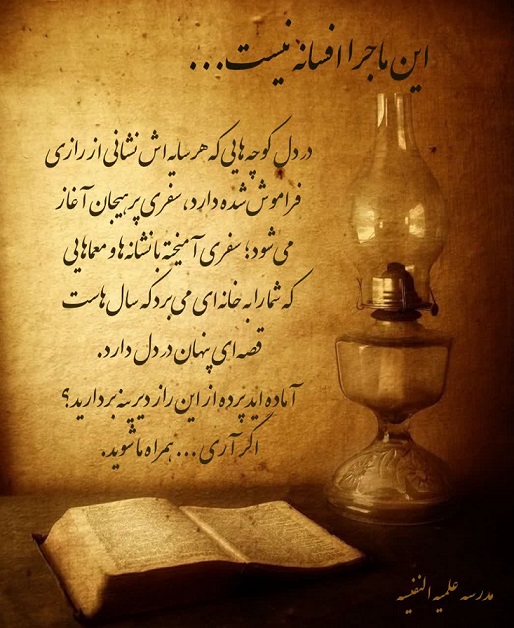 این ماجرا افسانه نیست...
در دل کوچه‌هایی که هر سایه اش نشانی از رازی
فراموش شده دارد، سفری پرهیجان آغاز
می‌شود؛ سفری آمیخته با نشانه‌ها و معماهایی
که شما را به خانه‌ای می‌برد که سال هاست
قصه‌ای پنهان در دل دارد.
آماده اید پرده از این راز دیرینه بردارید؟
اگر آری ... همراه ما شوید.
مدرسه علمیه النفیسه